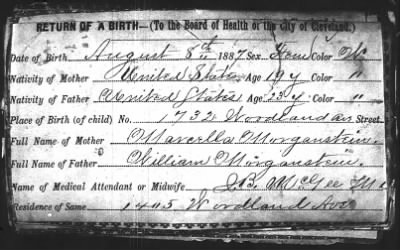 RETURN OF A BIRTH—(To the Board of Health of the City of Cleveland.)
Date of Birth August 8th 1887 Sex Fem Color W
Nativity of Mother United States Age 19 y Color "
Nativity of Father United States Age 23 y Color "
Place of Birth (of child) No. 1732 Woodland av Street
Full Name of Mother Marcella Morganstein.
Full Name of Father William Morganstein.
Name of Medical Attendant or Midwife J.B. McGee M.D.
Residence of Same 1405 Woodland Ave